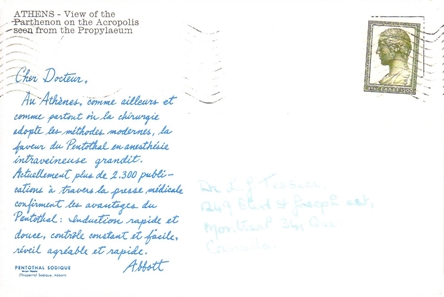 ATHENS - View of the
Parthenon on the Acropolis
seen from the Propylaeum
Cher Docteur,
Au Athènes, comme ailleurs et
comme partout où la chirurgie
adopte les méthodes modernes, la
faveur du Pentothal en anesthésie
intraveineuse grandit.
Actuellement plus de 2.300 publi-
cations à travers la presse médicale
confirment les avantages du
Pentothal: Induction rapide et
douce, contrôle constant et facile,
réveil agréable et rapide.
Abbott
PENTOTHAL SODIQUE
(Thiopental Sodique, Abbott)
Dr.
1249 Blvd St Joseph est,
Montreal 34, Que
Canada